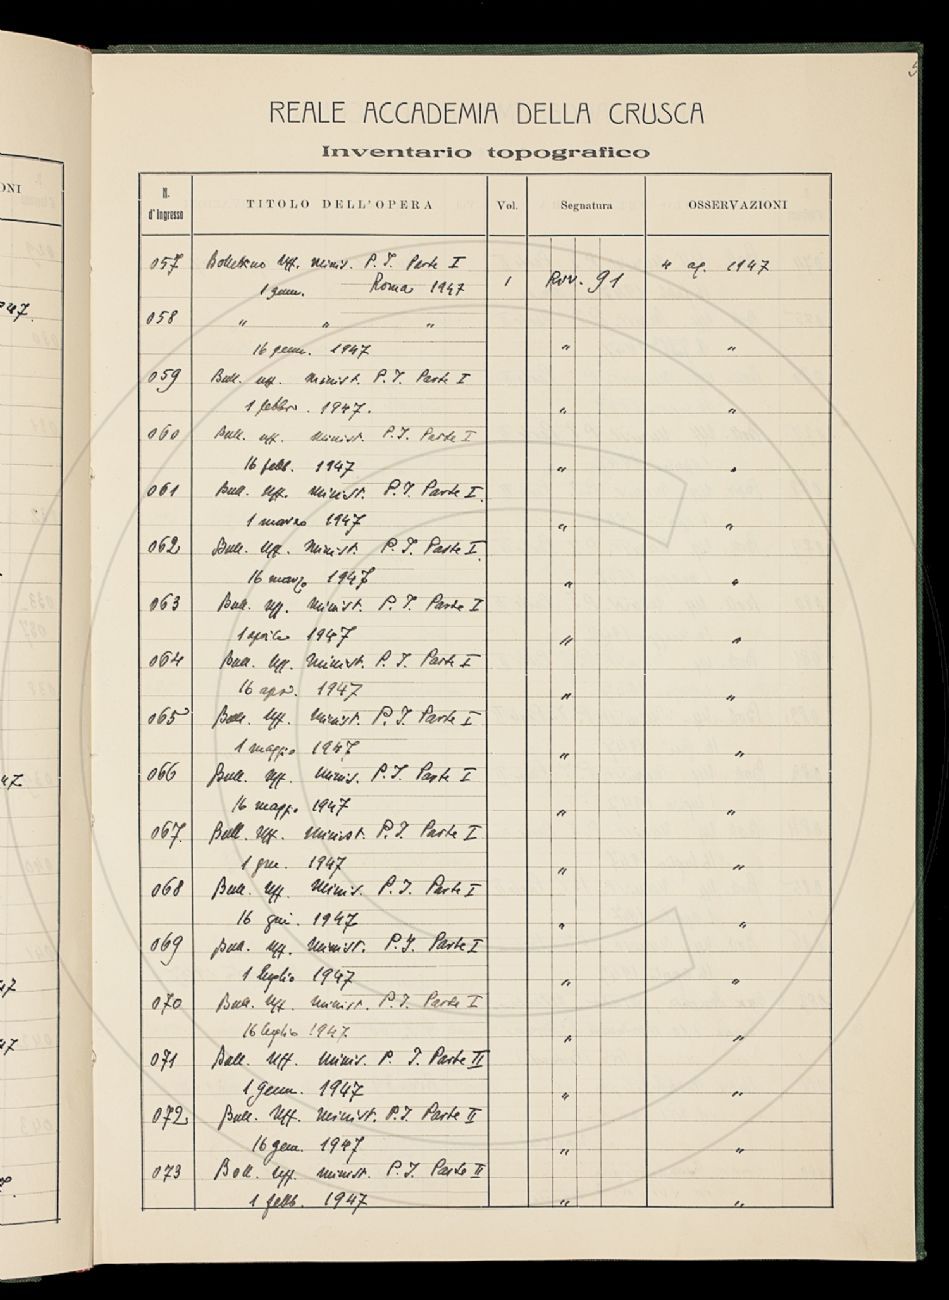 REALE ACCADEMIA DELLA CRUSCA
Inventario topografico
N. d'Ingresso TITOLO DELL'OPERA Vol. Segnatura OSSERVAZIONI
057 Bollettino Uff. Minis. P. I. Parte I 4 ag. 1947
1 genn. Roma 1947 1 Riv. 91
058 " " "
16 genn. 1947 " "
059 Boll. uff. Minist. P. I. Parte I
1 febbr. 1947. " "
060 Boll. uff. Minist. P. I. Parte I
16 febb. 1947 " "
061 Boll. Uff. Minist. P. I. Parte I.
1 marzo 1947 " "
062 Boll. Uff. Minist. P. I. Parte I.
16 marzo 1947 " "
063 Boll. Uff. Minist. P. I. Parte I
1 aprile 1947 " "
064 Boll. Uff. Minist. P. I. Parte I
16 apr. 1947 " "
065 Boll. Uff. Minist. P. I. Parte I
1 maggio 1947 " "
066 Boll. Uff. Minis. P. I. Parte I
16 maggio 1947 " "
067. Boll. Uff. Minist. P. I. Parte I
1 giu. 1947 " "
068 Boll. Uff Minis. P. I. Parte I
16 giu. 1947 " "
069 Boll. Uff. Minist. P. I. Parte I
1 luglio 1947 " "
070 Boll. Uff Minist. P. I. Parte I
16 luglio 1947 " "
071 Boll. Uff. Minis. P. I. Parte II
1 genn. 1947 " "
072. Boll. Uff. Minist. P. I. Parte II
16 gen. 1947 " "
073 Boll. Uff. Minist. P. I. Parte II
1 febb. 1947 " "